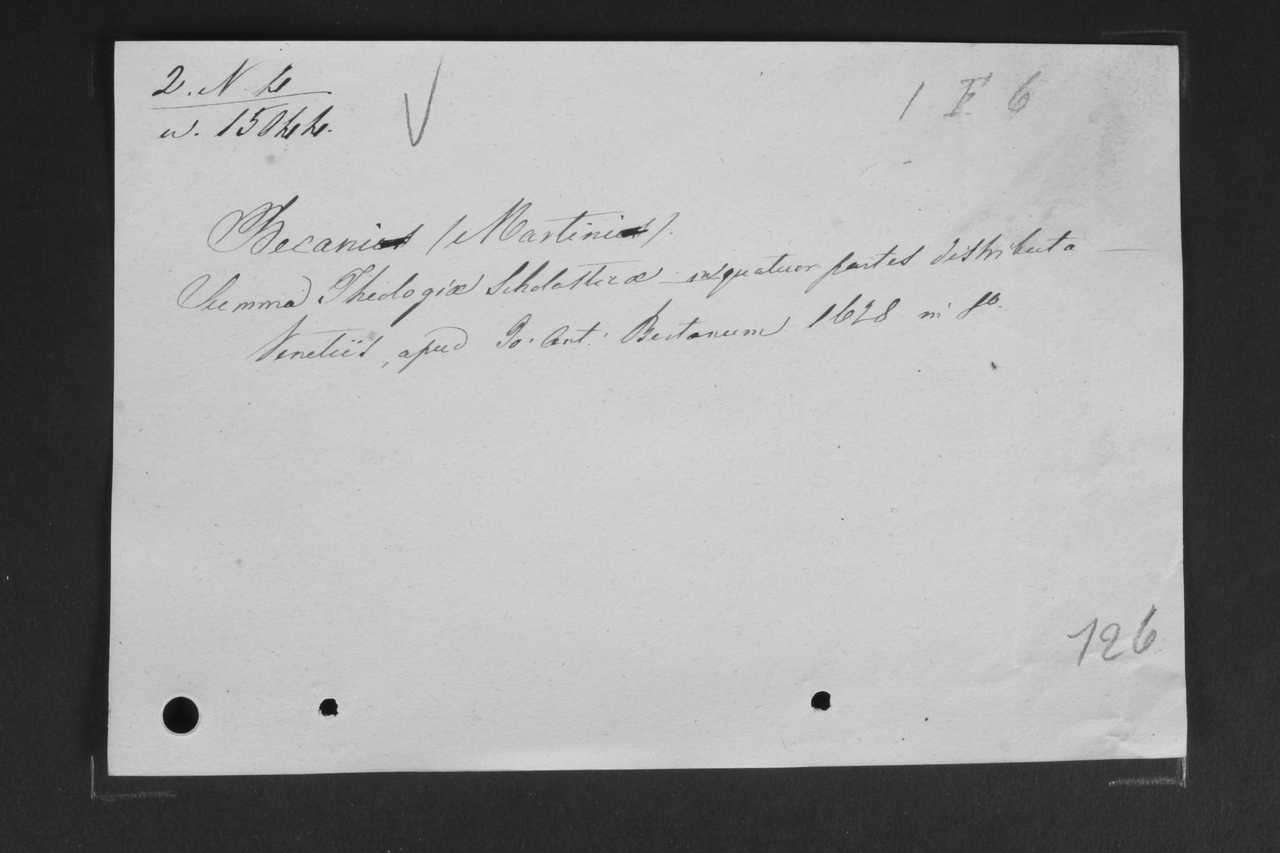 2. N. 4
w. 15044.
1 F. 6
Becani (Martini).
Summa Theologiæ Scholasticæ in quatuor partes distributa —
Venetiis, apud Jo: Ant: Bertanum 1628 in fo.
126